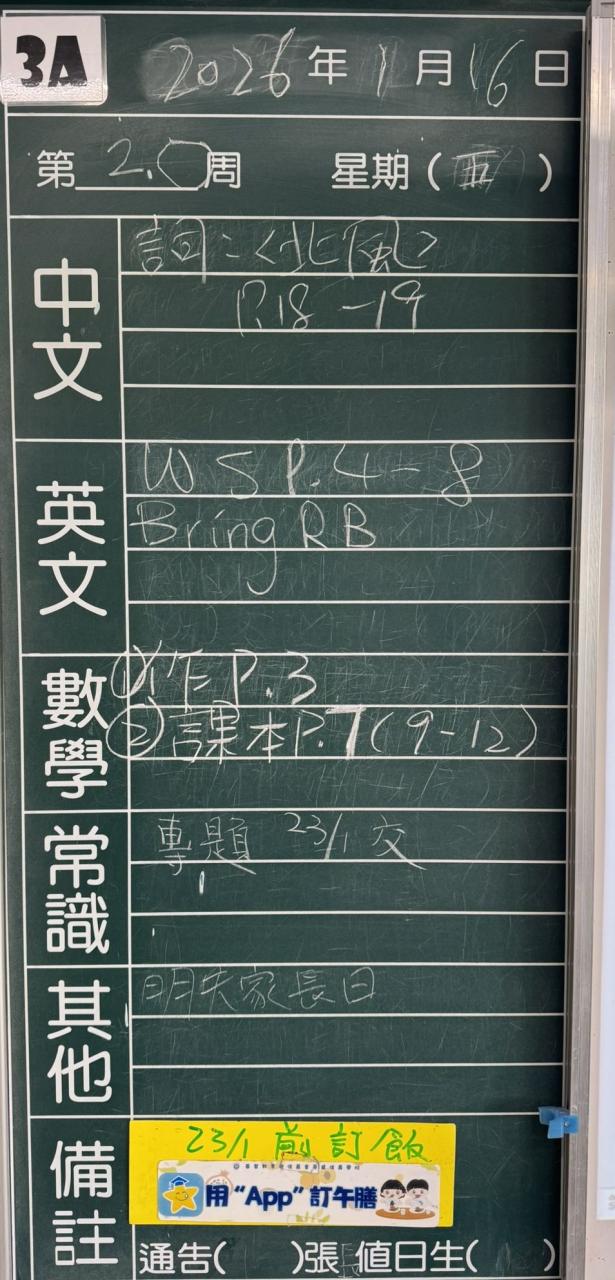 3A
2026年1月16日
第20周 星期(五)
中文
詞:〈北風〉
P.18-19
英文
WS P.4-8
Bring RB
數學
①作P.3
②課本P.7(9-12)
常識
專題 23/1 交
其他
明天家長日
備註
23/1前訂飯
用“App”訂午膳
通告( )張 值日生( )